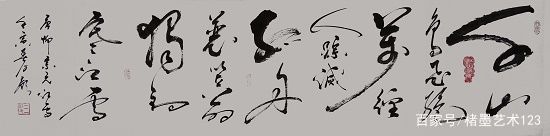 千山
鸟飞绝
万径
人踪灭
孤舟
蓑笠翁
独钓
寒江雪
唐柳宗元江雪
百家号/楮墨艺术123